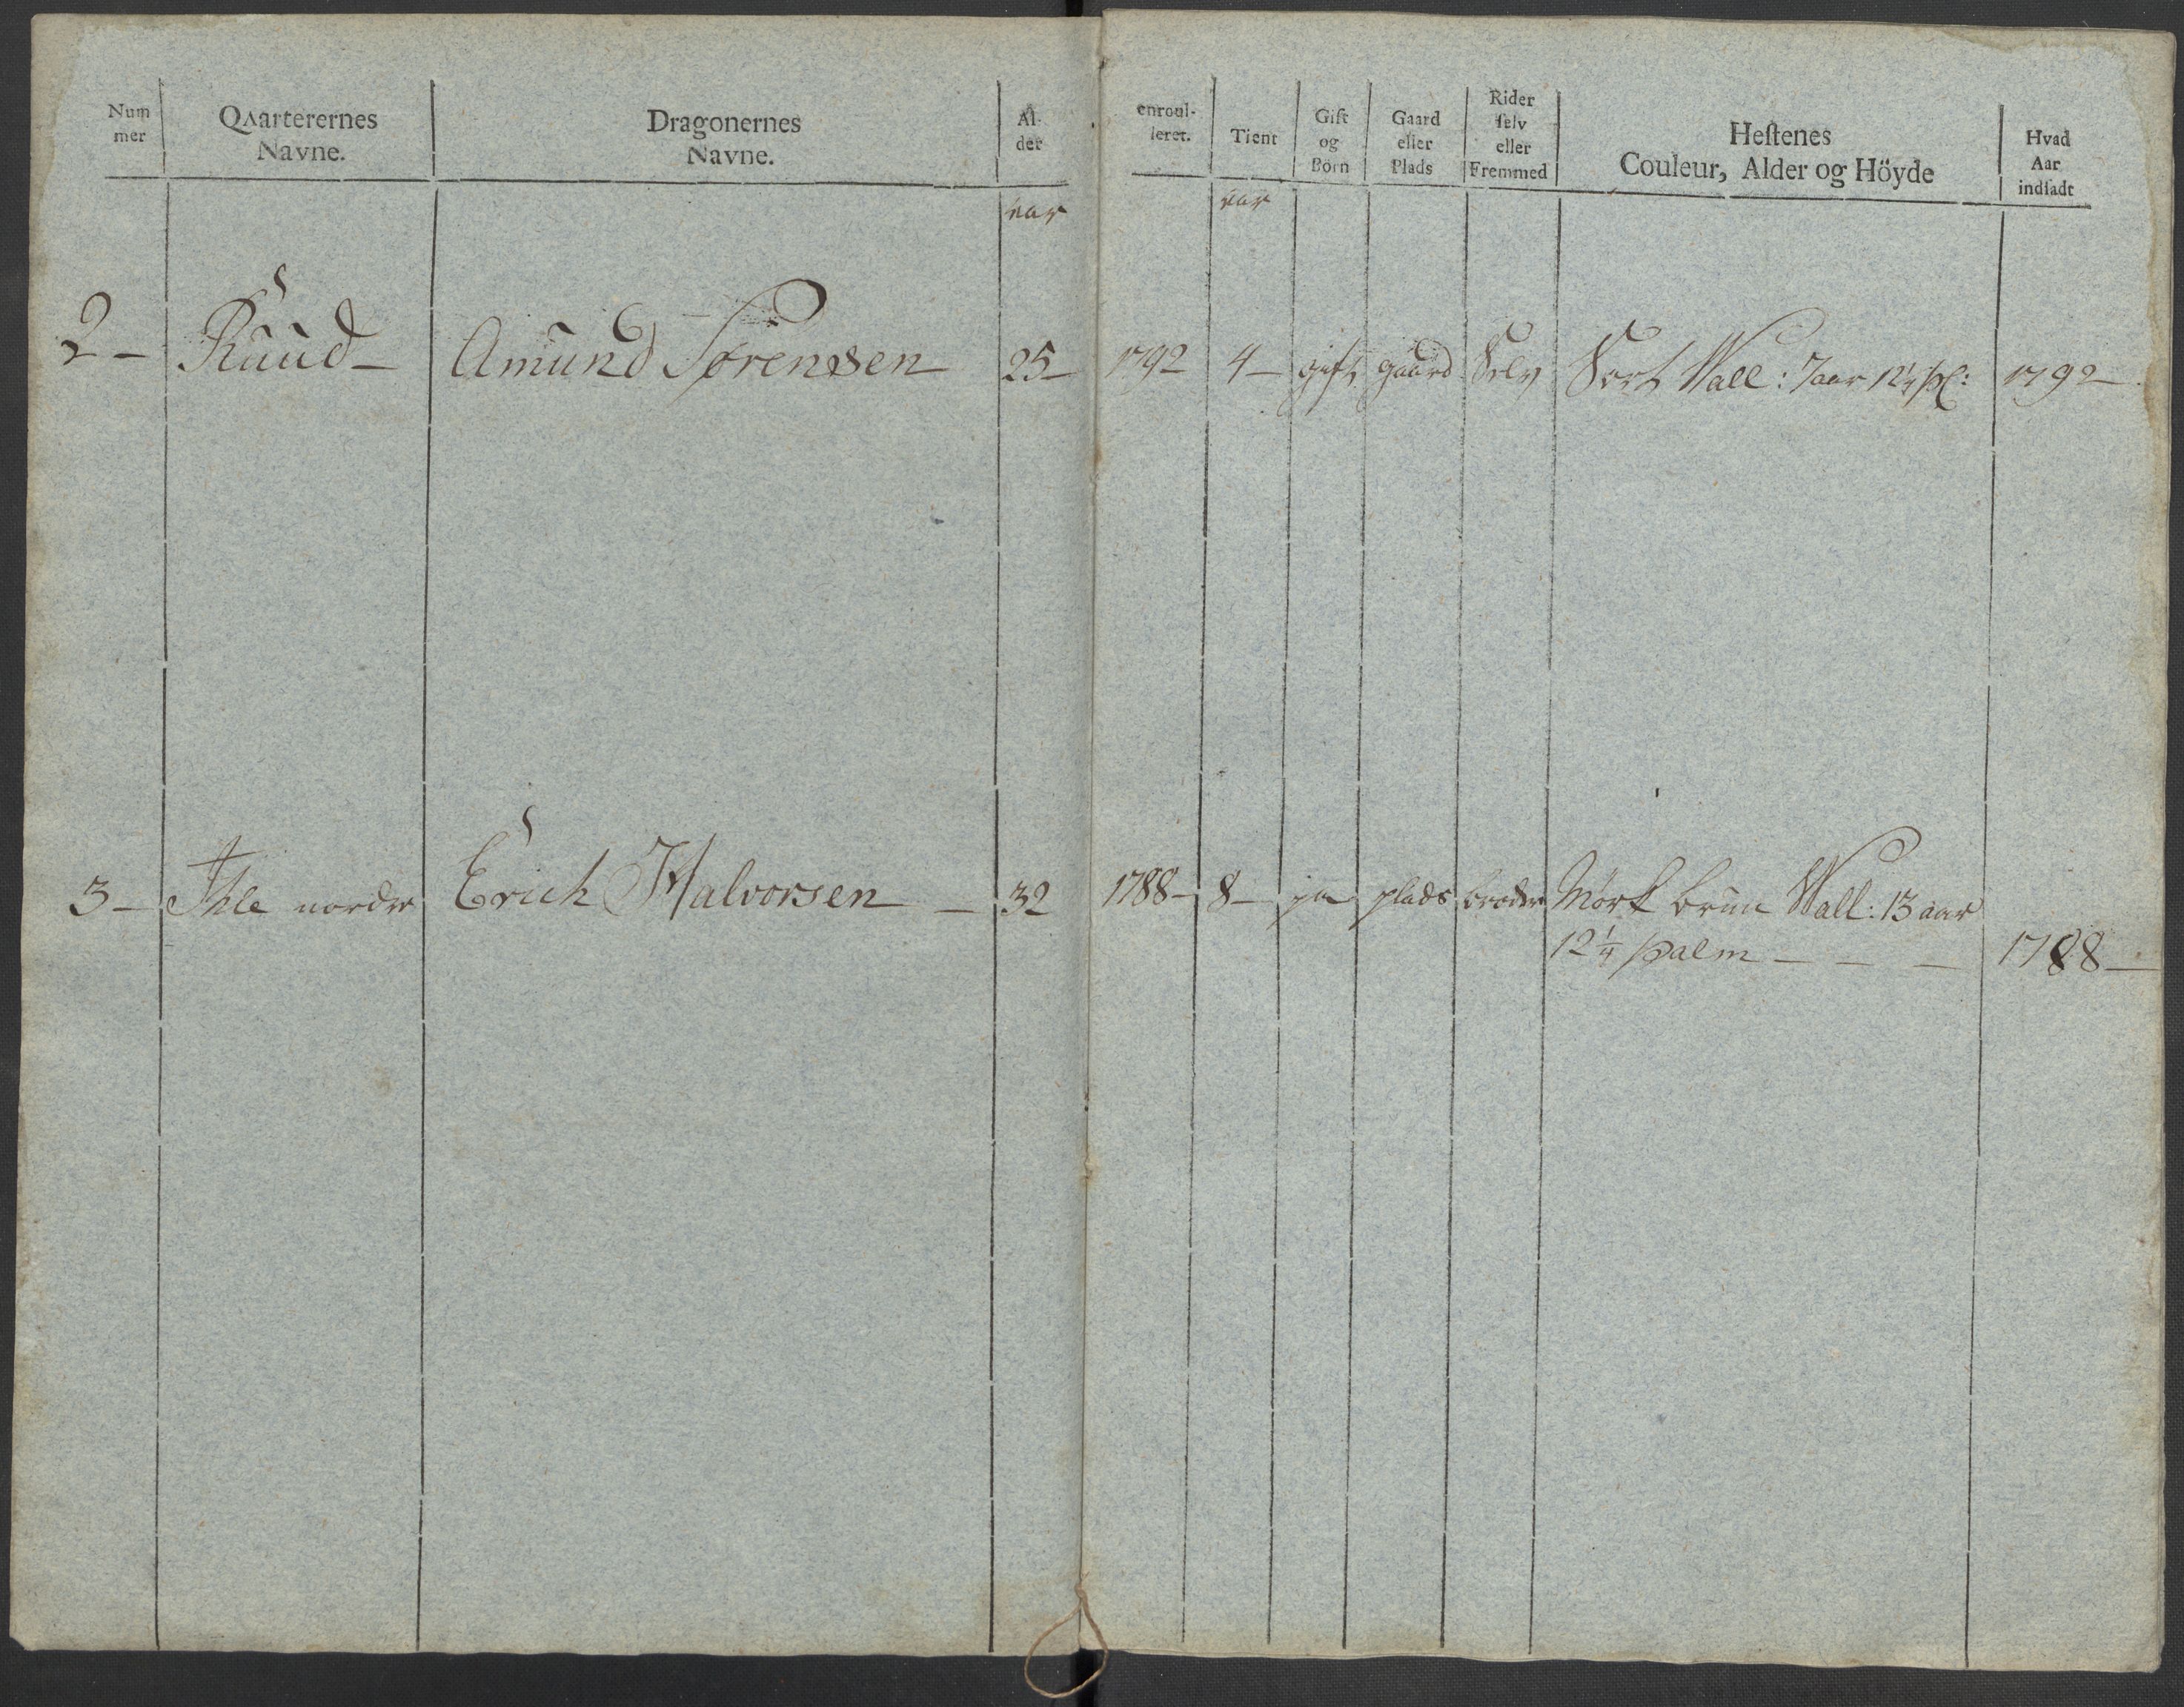 Num mer
Qvarterernes Navne.
Dragonernes Navne.
Al- der
enroul- leret.
Tient
Gift og Börn
Gaard eller Plads
Rider ſelv eller Fremmed
Heſtenes Couleur, Alder og Höyde
Hvad Aar indſadt
aar aar
2 - Ruud - Amund Sørensen 25 - 1792 4 - gift gaard Selv Sort Wall: 7 aar 12¼ pl: 1792 -
3 - Ihle nordre Erich Halvorsen - 32 1788 - 8 - ja plads broder Mørk brun Wall: 13 aar
12¼ palm - - - 1788 -